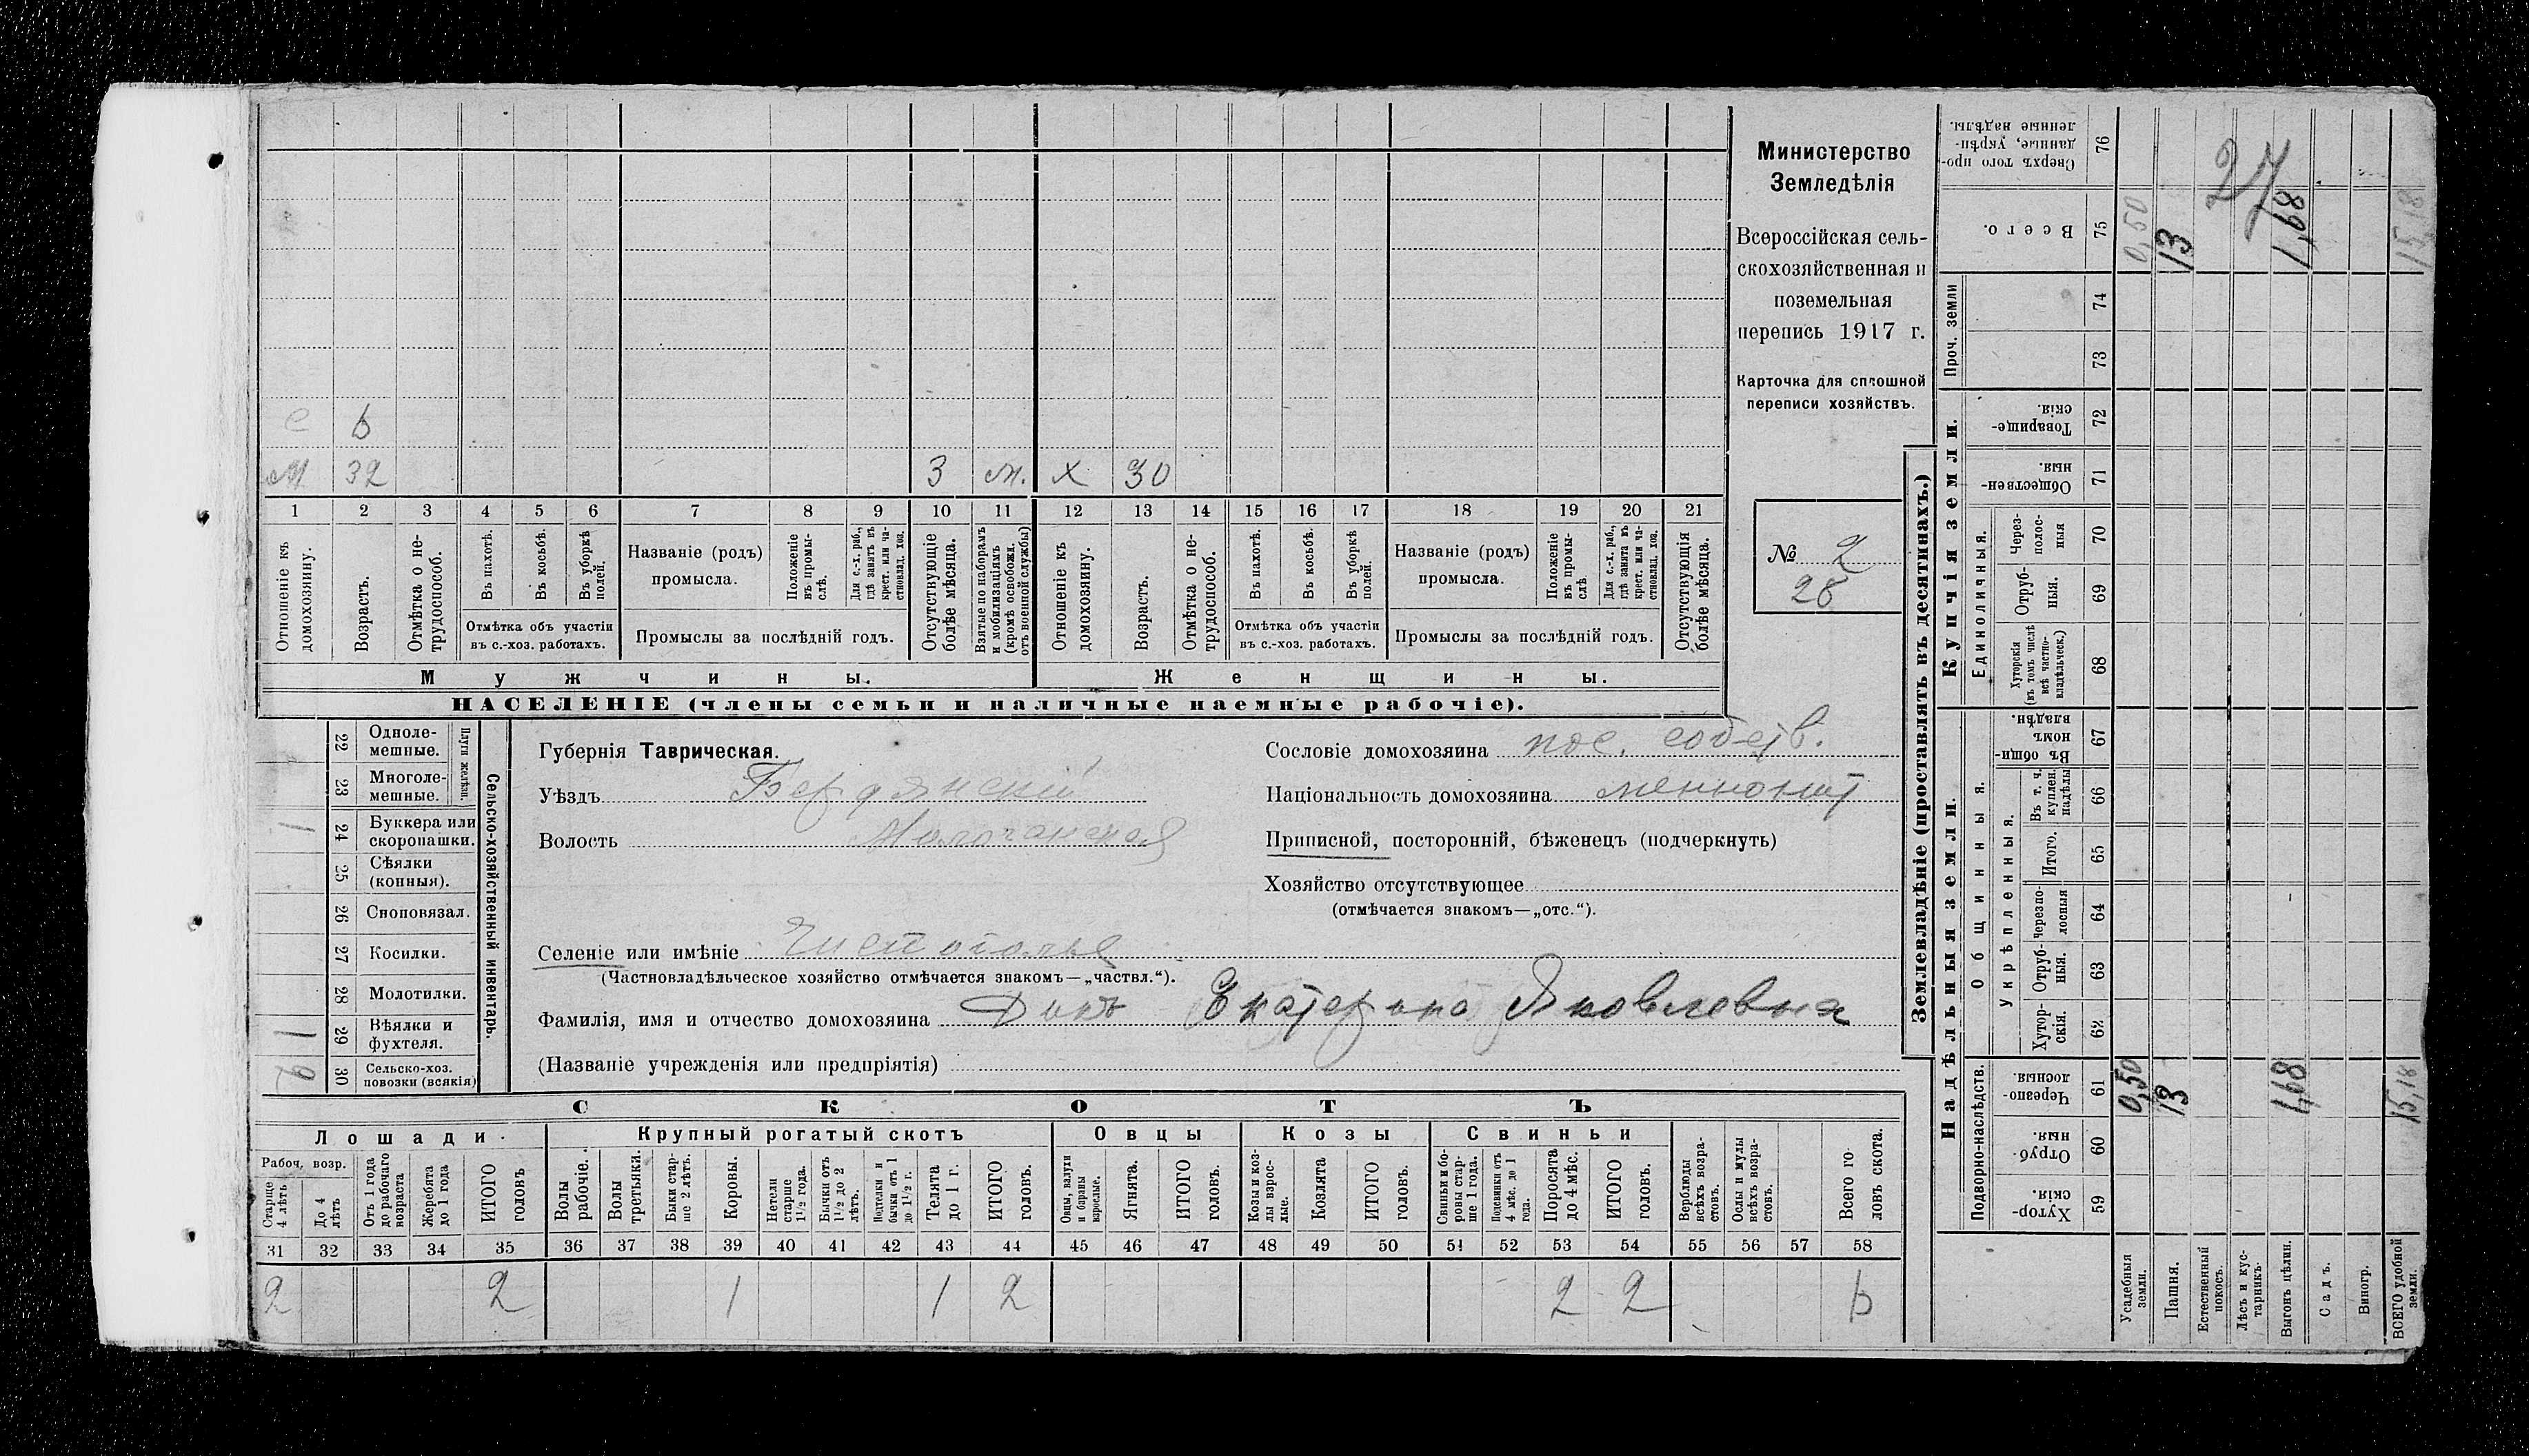 е 6
м 32 3 м. х 30
1 2 3 4 5 6 7 8 9 10 11 12 13 14 15 16 17 18 19 20 21
Отношеніе къ домохозяину.
Возрастъ.
Отмѣтка о не-трудоспособ.
Въ пахотѣ.
Въ косьбѣ.
Въ уборкѣ полей.
Отмѣтка объ участіи
въ с.-хоз. работахъ.
Названіе (родъ)
промысла.
Положеніе въ промы-слѣ.
Для с.-х. раб., гдѣ занятъ въ крест. или ча-стновлад. хоз.
Промыслы за послѣдній годъ.
Отсутствующіе болѣе мѣсяца.
Взятые по наборамъ и мобилизаціямъ (кромѣ освобожд. отъ военной службы)
Отношеніе къ домохозяину.
Возрастъ.
Отмѣтка о не-трудоспособ.
Въ пахотѣ.
Въ косьбѣ.
Въ уборкѣ полей.
Отмѣтка объ участіи
въ с.-хоз. работахъ.
Названіе (родъ)
промысла.
Положеніе въ промы-слѣ
Для с.-х. раб., гдѣ занята въ крест. или ча-стновлад. хоз.
Промыслы за послѣдній годъ.
Отсутствующія болѣе мѣсяца.
Мужчины.
Женщины.
НАСЕЛЕНІЕ (члены семьи и наличные наемные рабочіе).
Министерство
Земледѣлія
Всероссійская сель-
скохозяйственная и
поземельная
перепись 1917 г.
Карточка для сплошной
переписи хозяйствъ.
№ 2
28
Сельско-хозяйственный инвентарь.
Плуги желѣзн.
22 Одноле-мешные.
23 Многоле-мешные.
1 24 Буккера или скоропашки.
25 Сѣялки (конныя).
26 Сноповязал.
27 Косилки.
28 Молотилки.
1 29 Вѣялки и фухтеля.
30 Сельско-хоз. повозки (всякія)
Губернія Таврическая.
Уѣздъ Бердянскій
Волость Молочанская
Селеніе или имѣніе Чистополье
(Частновладѣльческое хозяйство отмѣчается знакомъ—„частвл.“).
Фамилія, имя и отчество домохозяина Дикъ Екатерина Яковлевна
(Названіе учрежденія или предпріятія)
Сословіе домохозяина пос. собств.
Національность домохозяина меннонит
Приписной, посторонній, бѣженецъ (подчеркнуть)
Хозяйство отсутствующее
(отмѣчается знакомъ—„отс.“).
СКОТЪ
Лошади.
Крупный рогатый скотъ
Овцы
Козы
Свиньи
Рабоч. возр.
Старше 4 лѣтъ
До 4 лѣтъ
Отъ 1 года до рабочаго возраста
Жеребята до 1 года
ИТОГО головъ
Волы рабочіе.
Волы третьяки.
Быки стар-ше 2 лѣтъ.
Коровы.
Нетели старше 1½ года.
Бычки отъ 1½ до 2 лѣтъ.
Подтелки и бычки отъ 1 до 1½ г.
Телята до 1 г.
ИТОГО головъ.
Овцы, валухи и бараны взрослые.
Ягнята.
ИТОГО головъ.
Козы и коз-лы взрос-лые.
Козлята
ИТОГО головъ.
Свиньи и бо-ровы стар-ше 1 года.
Подсвинки отъ 4 мѣс. до 1 года.
Поросята до 4 мѣс.
ИТОГО головъ.
Верблюды всѣхъ возра-стовъ.
Ослы и мулы всѣхъ возра-стовъ.
Всего го-ловъ скота.
31 32 33 34 35 36 37 38 39 40 41 42 43 44 45 46 47 48 49 50 51 52 53 54 55 56 57 58
2 2 1 1 2 2 2 6
Землевладѣніе (проставлять въ десятинахъ.)
Надѣльныя земли.
Купчія земли.
Проч. земли
Подворно-наслѣдств.
Общинныя.
Укрѣпленныя.
Единоличныя.
Сверхъ того про-данные, укрѣп-ленные надѣлы. 76
Всего. 75 0,50 13 1,68 15,18
27
74
73
Товарище-скія. 72
Обществен-ныя. 71
Через-полос-ныя 70
Отруб-ныя. 69
Хуторскія (въ томъ числѣ всѣ частно-владѣльческ.) 68
Въ общин-номъ владѣн. 67
Въ т. ч. куплен. надѣлы 66
Итого. 65
Черезпо-лосныя 64
Отруб-ныя. 63
Хутор-скія. 62
Черезпо-лосныя. 61 0,50 13 1,68 15,18
Отруб-ныя. 60
Хутор-скія. 59
Усадебныя земли.
Пашня.
Естественный покосъ.
Лѣсъ и кус-тарникъ.
Выгонъ цѣлин.
Садъ.
Виногр.
ВСЕГО удобной земли.